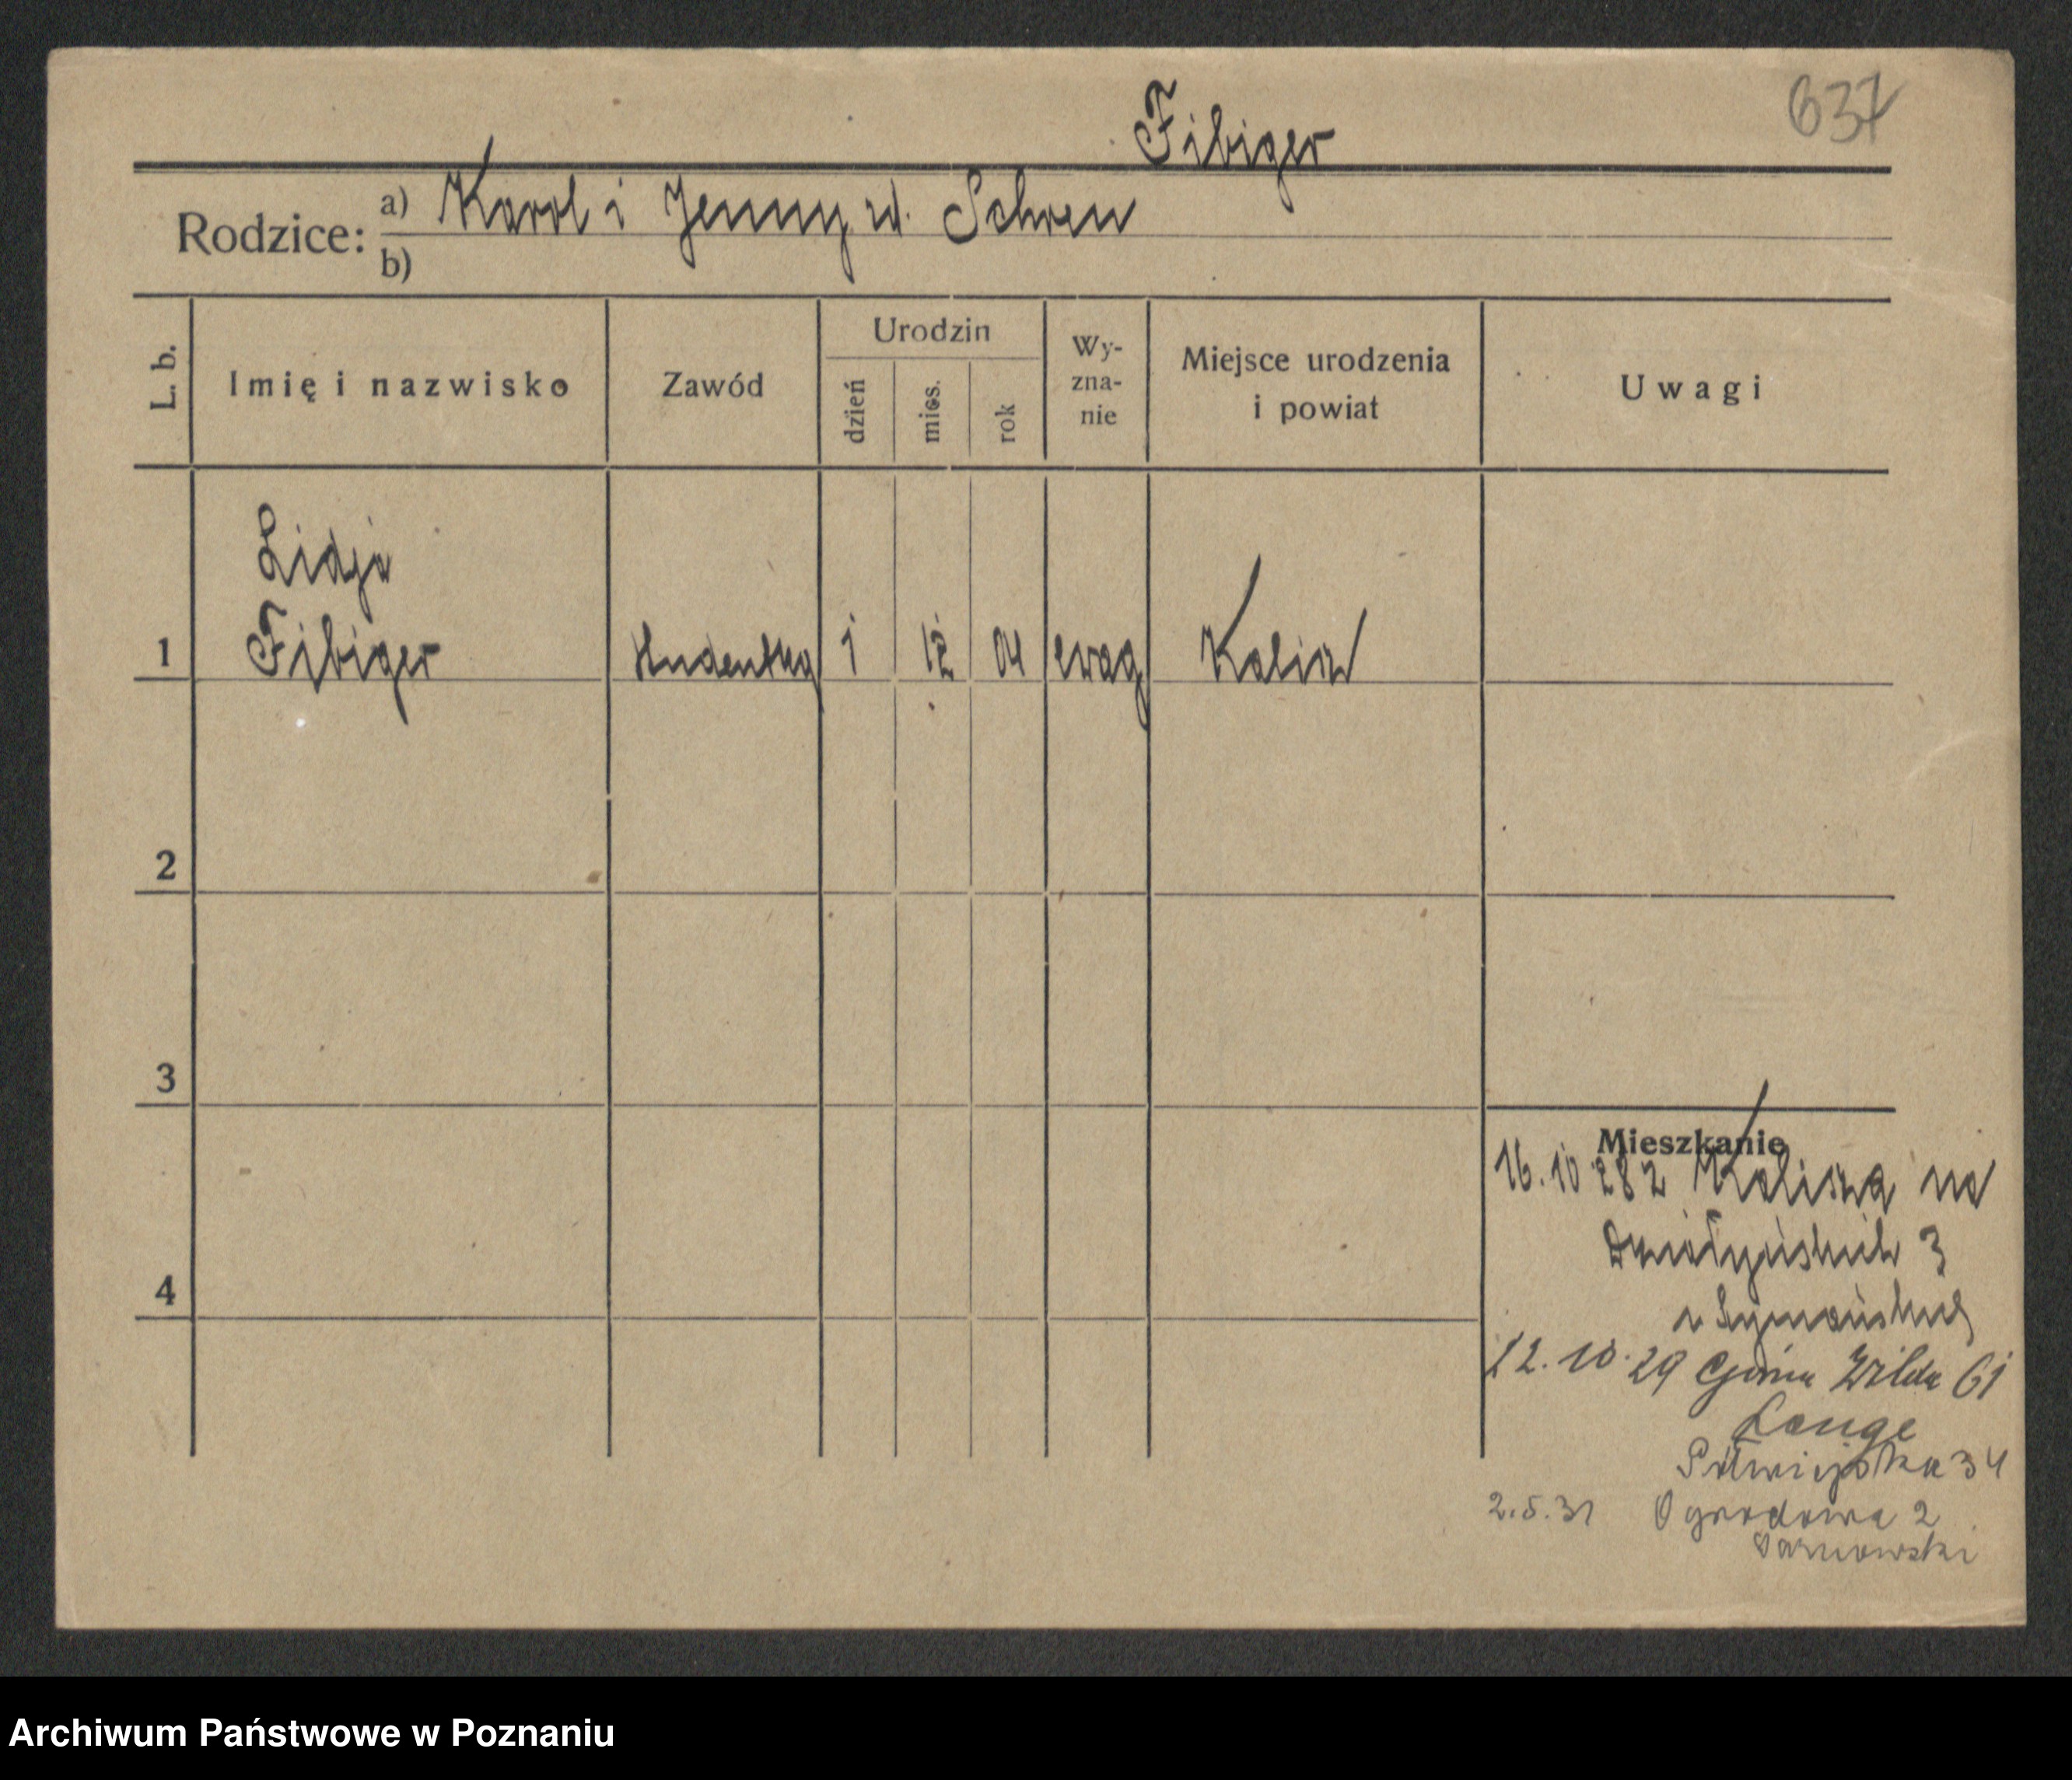 637
Fibiger
Rodzice: a) Karol i Jenny ur. Schren
b)
L. b.
Imię i nazwisko
Zawód
Urodzin
dzień
mies.
rok
Wy-
zna-
nie
Miejsce urodzenia
i powiat
Uwagi
Lidja
1 Fibiger studentka 1 12 04 ewag Kalisz
2
3
4
Mieszkanie
16.10 28 z Kalisza na
Działyńskich 3
12.10.29 Górna Wilda 61
Lange
Półwiejska 34
2.5.31 Ogrodowa 2
Archiwum Państwowe w Poznaniu